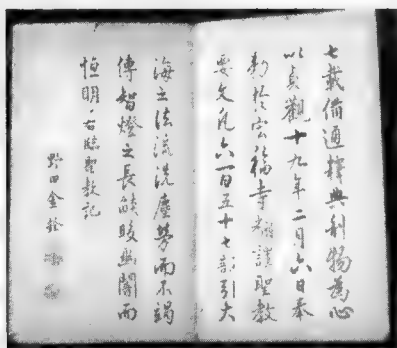 七載備通釋典利物為心
以貞觀十九年二月六日奉
勑於宏福寺翻譯聖教
要文凡六百五十七部引大
海之法流洗塵勞而不竭
傳智燈之長燄皎幽闇而
恒明 右臨聖教記
田金